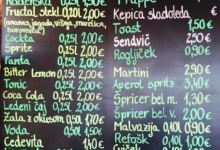 Radenska 0,25l 2,00€
Fructal, stekl. 0,20l 2,00€
(ananas, jagoda, višnja, marelica,
borovnica)
Cockta 0,25l 2,00€
Sprite 0,25l 2,00€
Fanta 0,25l 2,00€
Bitter Lemon 0,25l 2,00€
Tonic 0,25l 2,00€
Coca Cola 0,25l 2,00€
Ledeni čaj 0,20l 2,00€
Zala z okusom 0,50l 1,70€
Voda 0,50l 1,50€
Cedevita 1,50€
Frappe
Kepica sladoleda
Toast 1,50€
Sendvič 2,00€
Rogljiček 0,90€
Martini 2,90€
Aperol spritz 3,50€
Špricer bel m. 1,30€
Špricer bel v. 2,00€
Malvazija 0,10l 0,90€
Refošk 0,10l 0,90€